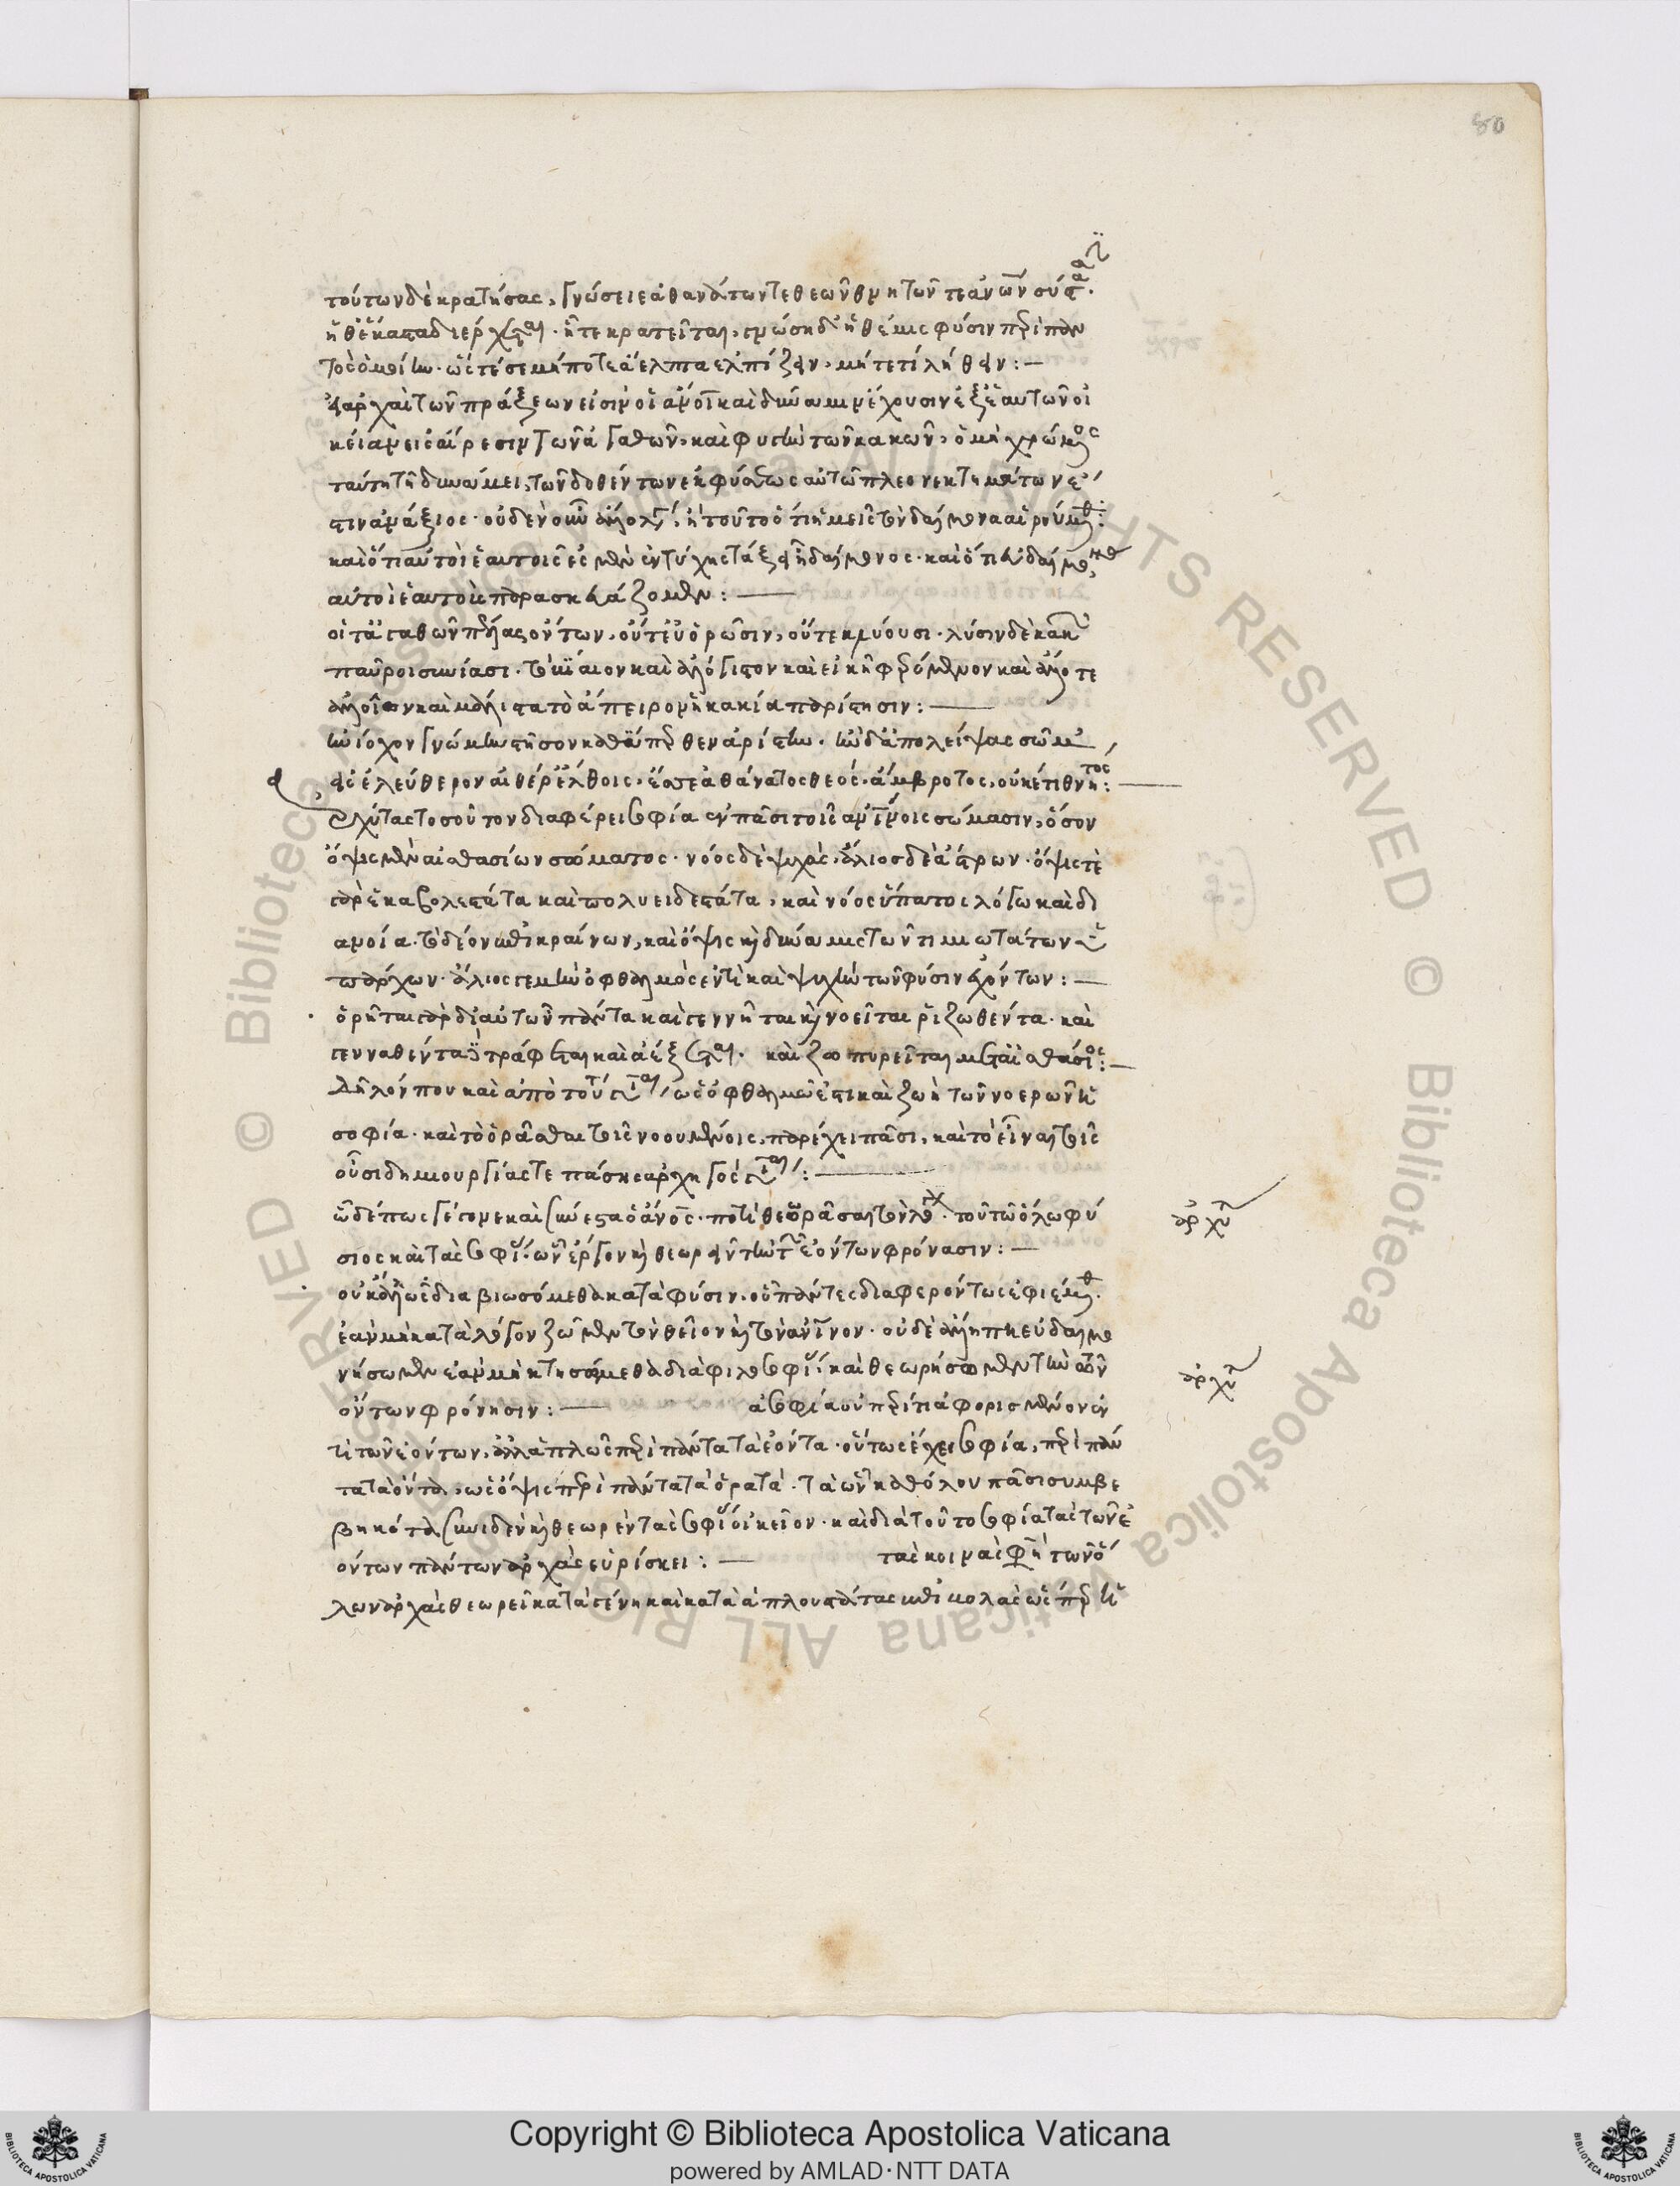 80
τούτων δὲ κρατήσας, γνώσειε ἀθανάτων τε θεῶν θνητῶν τε ἀνῶν σύστα
ᾗ θ' ἕκαστα διέρχεται. ᾗτε κρατεῖται, γνώσῃ δ' ᾗ θέμις φύσιν περὶ παν
τὸς ὁμοίην. ὥστέ σε μήποτε ἄελπτα ἐλπίζειν, μήτε τι λήθειν:—
αἱ ἀρχαὶ τῶν πράξεων εἰσιν οἱ ἄνοι καὶ δύναμιν ἔχουσιν ἐξ ἑαυτῶν οἰ
κείαν εἰς αἵρεσιν τῶν ἀγαθῶν, καὶ φυγὴν τῶν κακῶν, ὁ μὴ χρώμενος
ταύτῃ τῇ δυνάμει, τῶν δοθέντων ἐκ φύσεως αὐτῷ πλεονεκτημάτων ἐ
στιν ἀνάξιος. οὐδὲν οὖν ἄλλο λέγει, ἢ τοῦτο ὅτι ἡμεῖς τὸν δαίμονα αἱρούμεθα:
καὶ ὅτι αὐτοὶ ἑαυτοῖς ἐσμὲν ἐν τύχης τάξει ἢ δαίμονος. καὶ ὅτι εὐδαίμονας
αὐτοὶ ἑαυτοὺς παρασκευάζομεν:—
οἵ τ' ἀγαθῶν πέλας ὄντων, οὔτ' εὖ ὁρῶσιν, οὔτε κλύουσι. λύσιν δὲ κακῶν
παῦροι συνίασι.
ἀλλοῖον καὶ μάλιστα τὸ ἄπειρον ἡ κακία παρίστησιν:—
ἡνίοχον γνώμην στῆσον καθύπερθεν ἀρίστην. ἢν δ' ἀπολείψας σῶμα
ἐς αἰθέρ' ἐλεύθερον ἔλθοις, ἔσσε ἀθάνατος θεὸς, ἄμβροτος, οὐκέτι θνητος:—
ψυχᾶς τοσοῦτον διαφέρει σοφία ἐν πᾶσι τοῖς ἀνίνοις σώμασιν, ὅσον
ὄψις μὲν αἰσθασίων σώματος. νόος δὲ ψυχᾶς, ἅλιος δὲ ἄστρων. ὄψις τὲ
γὰρ ἑκαβολεστάτα καὶ πολυειδεστάτα, καὶ νόος ὕπατος λόγῳ καὶ δι
ανοίᾳ. τὸ δέον ἐπικραίνων, καὶ ὄψις καὶ δύναμις τῶν τιμιωτάτων ὑ
πάρχων. ἅλιός γε μὴν ὀφθαλμός ἐντὶ καὶ ψυχὴ τῶν φύσιν ἐχόντων:—
ὁρῆται γὰρ δι' αὐτῶν πάντα καὶ γεννῆται καὶ νοεῖται ῥιζωθέντα. καὶ
γενναθέντα τράφεται καὶ ἀέξεται. καὶ ζωπυρεῖται μετὰ αἰσθάσιος:—
Δῆλόν που καὶ ἀπὸ τούτου, ὡς ὀφθαλμός ἐστι καὶ ζωὴ τῶν νοερῶν ἡ
σοφία. καὶ τὸ ὁρᾶσθαι τοῖς νοουμένοις, παρέχει πᾶσι, καὶ τὸ εἶναι τοῖς
οὖσι δημιουργίας τε πάσης ἀρχηγός ἐστι:—
ὧδέ πως γέγονε καὶ συνέστα ὁ ἄνος. ποτὶ θεωρᾶσαι τὸν λόγον τοῦ τῶ ὅλω φύ
σιος καὶ τᾶς σοφίας. ὧν ἔργον καὶ θεωρεῖν τὴν τῶν ἐόντων φρόνασιν:—
οὐκ ἄλλως διαβιωσόμεθα κατὰ φύσιν. οὗ πάντες διαφερόντως ἐφιέμεθα.
ἐὰν μὴ κατὰ λόγον ζῶμεν τὸν θεῖον καὶ τὸν ἀνίνον. οὐδὲ ἄλλῃ πη εὐδαιμο
νήσωμεν ἐὰν μὴ κτησώμεθα διὰ φιλοσοφίας καὶ θεωρήσωμεν τὴν τῶν
ὄντων φρόνησιν:— ἁ σοφία οὐ περί τι ἀφορισμένον ἐν
τί τῶν ἐόντων, ἀλλὰ ἁπλῶς περὶ πάντα τὰ ἐόντα. οὕτως ἔχει σοφία, περὶ πάν
τα τὰ ὄντα, ὡς ὄψις περὶ πάντα τὰ ὁρατά. τὰ ὦν καθόλου πᾶσι συμβε
βηκότα συνιδεῖν καὶ θεωρὲν τᾶς σοφίας οἰκεῖον. καὶ διὰ τοῦτο σοφία τὰς τῶν ἐ
όντων πάντων ἀρχὰς εὑρίσκει:— τὰς κοινὰς φησὶ τῶν ὅ
λων ἀρχὰς θεωρεῖ κατὰ γένη καὶ κατὰ ἁπλουστάτας ἐπιβολὰς ὥσπερ ἡ
ἀρχύτ
ἀρχύτ
Copyright © Biblioteca Apostolica Vaticana
powered by AMLAD·NTT DATA